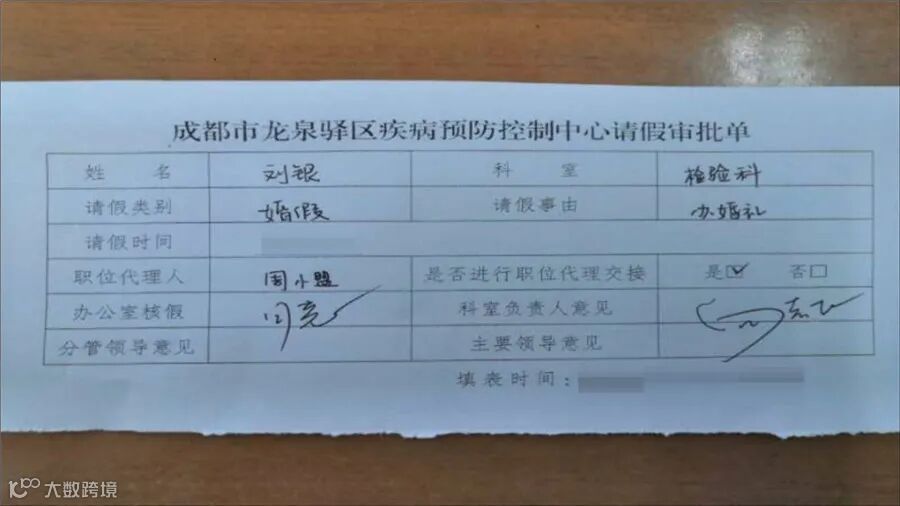 成都市龙泉驿区疾病预防控制中心请假审批单
姓名 刘银 科室 检验科
请假类别 婚假 请假事由 办婚礼
请假时间
职位代理人 周小盟 是否进行职位代理交接 是☑ 否□
办公室核假 科室负责人意见
分管领导意见 主要领导意见
填表时间：
大数跨境